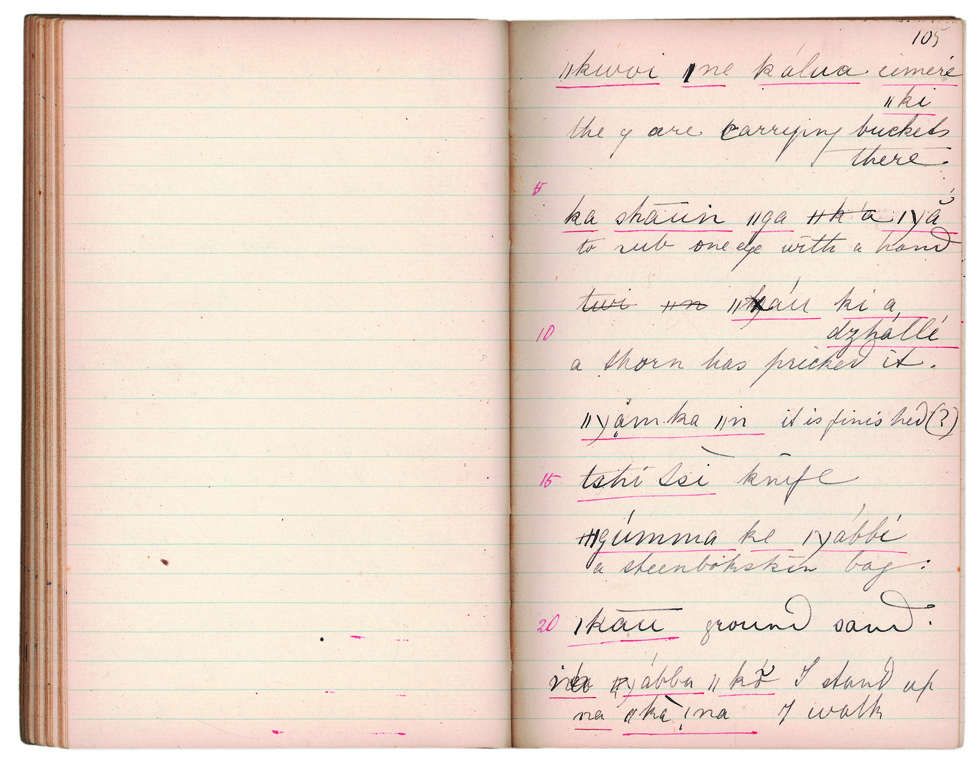 105
ǁkuoi ǀne kálua eimére
ǁki
they are carrying buckets
there.
5
ka shāūin ǁga ǁk'a ǀyá
to rub one eye with a hand
twi ǁn ǁkáu ki a
10 dzhállé
a thorn has pricked it.
ǁyạmka ǁn it is finished (?)
15 tshí tsi knife
gúmma ke ǀyábbí
a steenbokskin bag.
20 ǀkāū ground sand.
yábba ǁkō I stand up
na ǁkà ǃna I walk